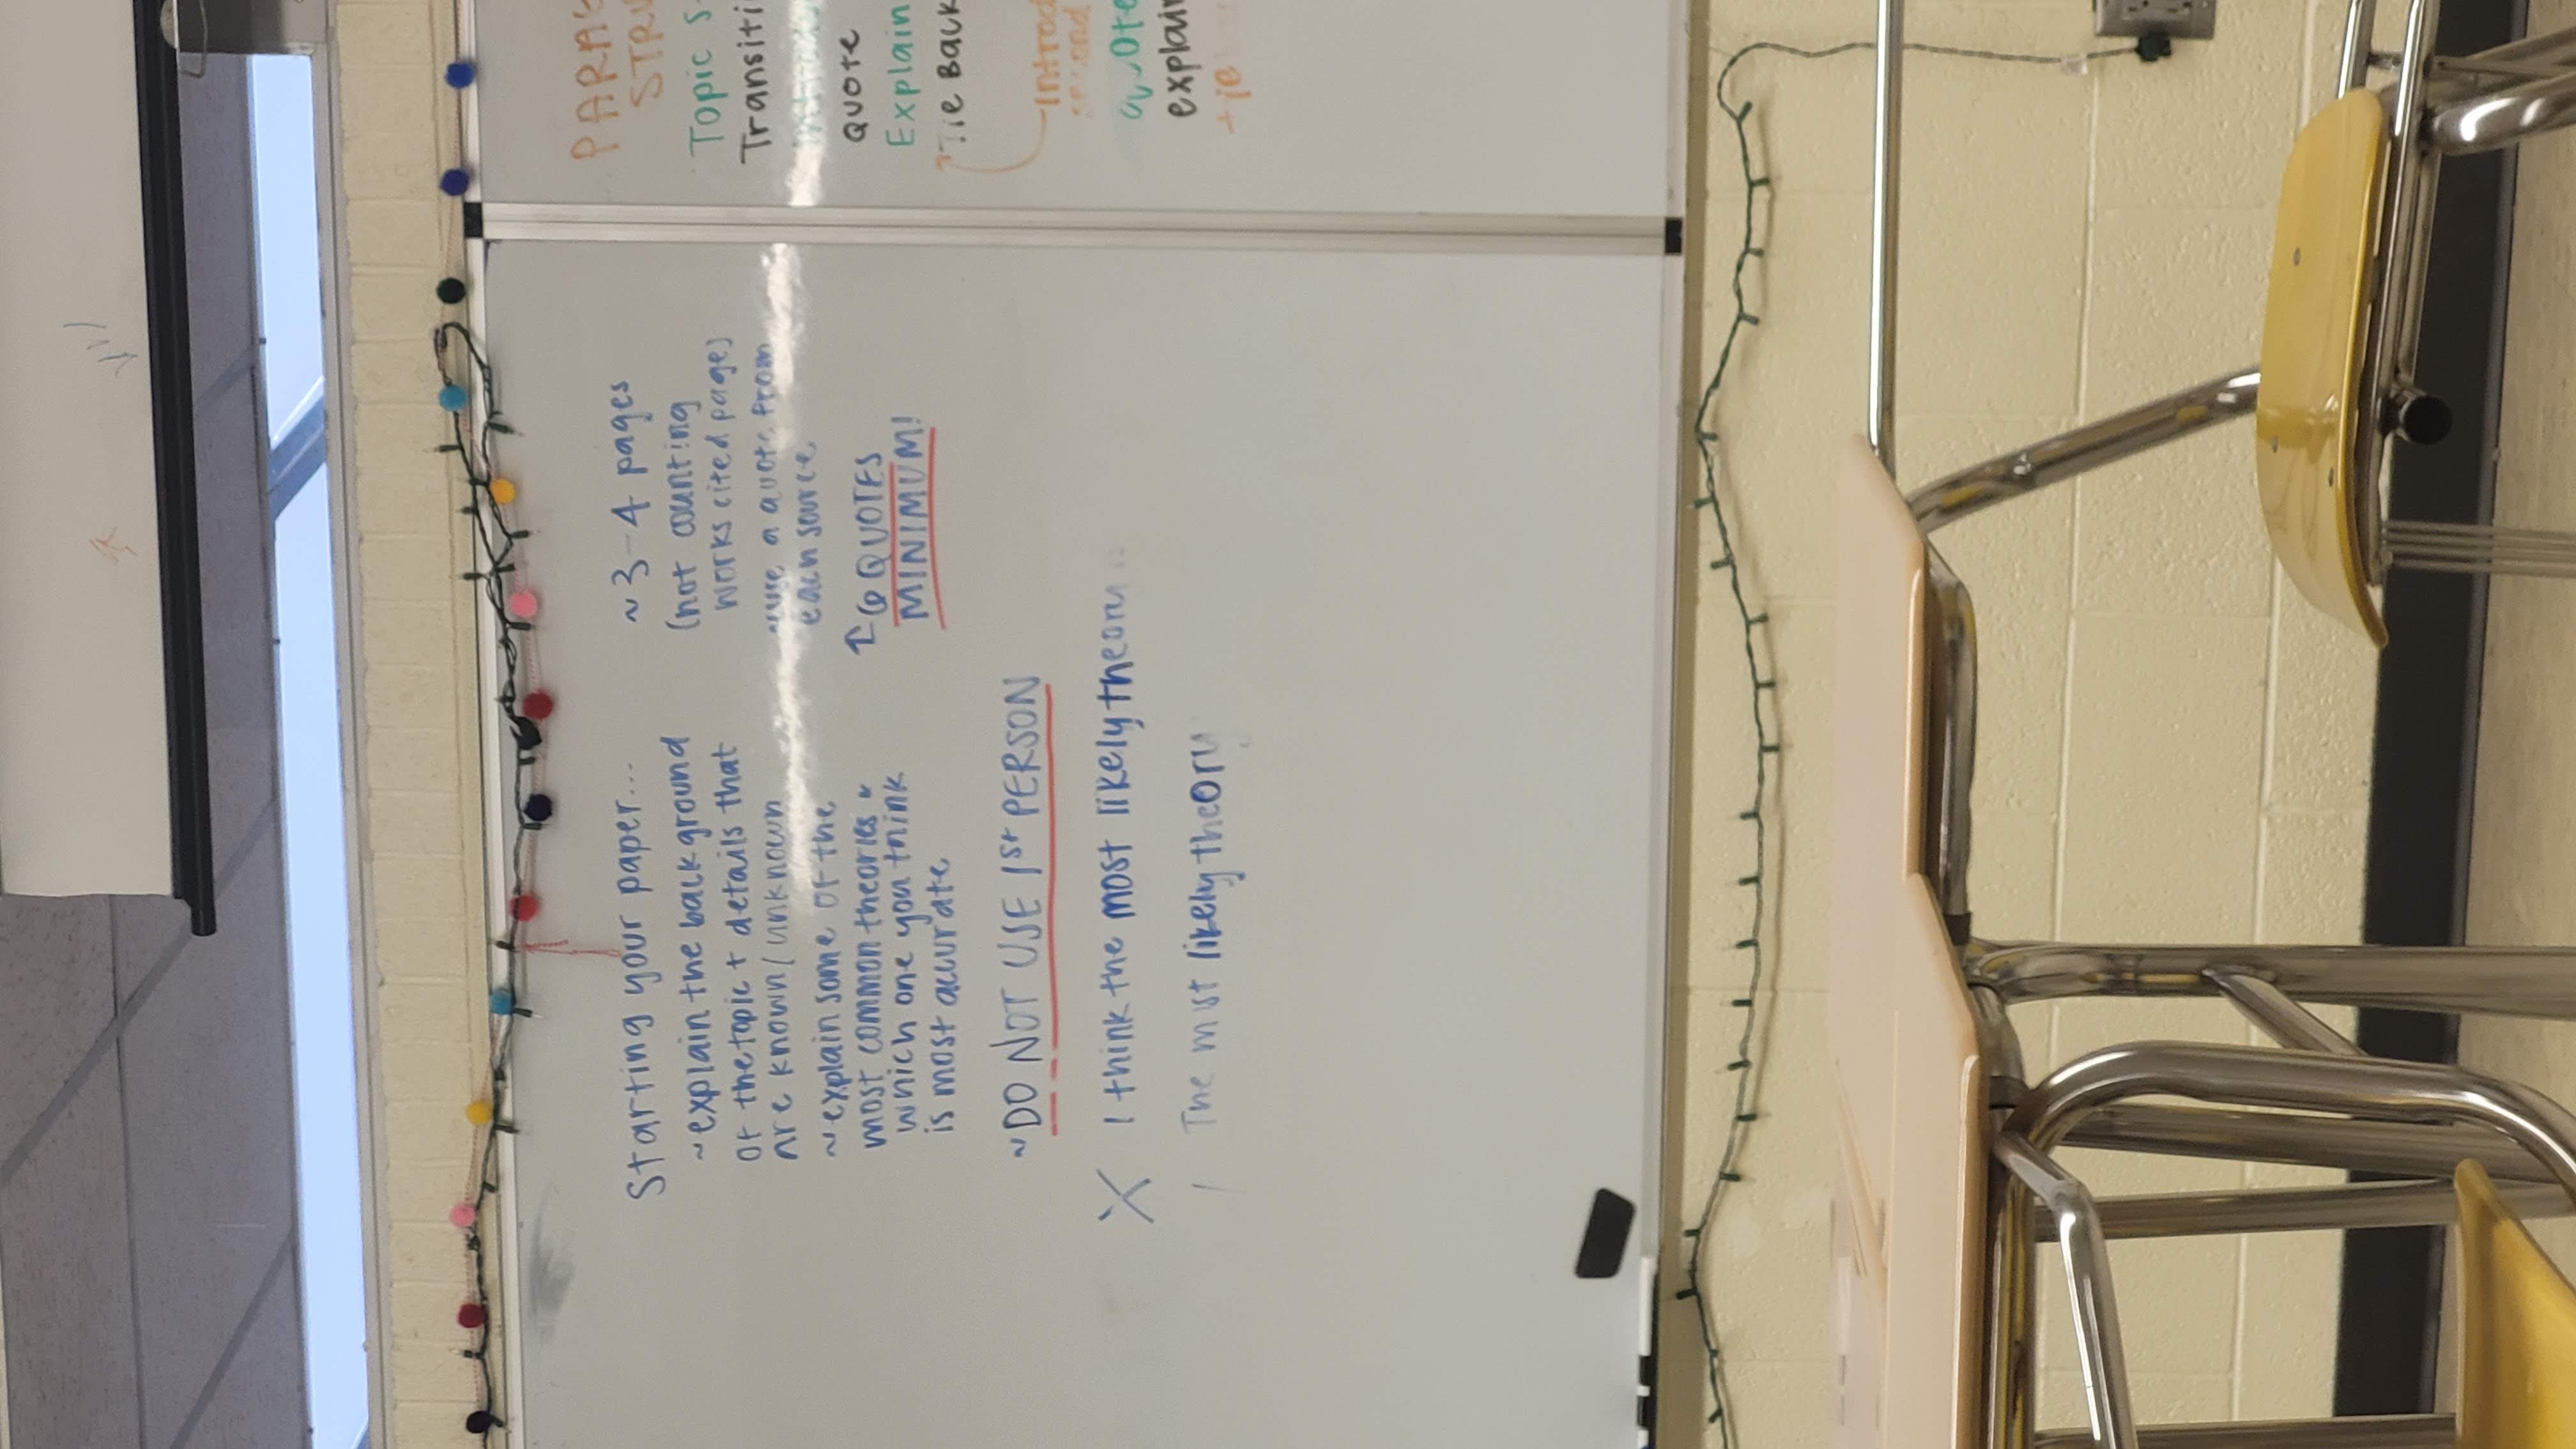 Starting your paper...
~explain the background
of the topic + details that
are known/unknown
~explain some of the
most common theories &
which one you think
is most accurate
~DO NOT USE 1st PERSON
X I think the most likely theory is
The most likely theory
~3-4 pages
(not counting
works cited page)
~use a quote from
each source
↑ 6 QUOTES
MINIMUM!
Topic
Transiti
quote
Explain
Tie Back
Introd
quote
explain
tie